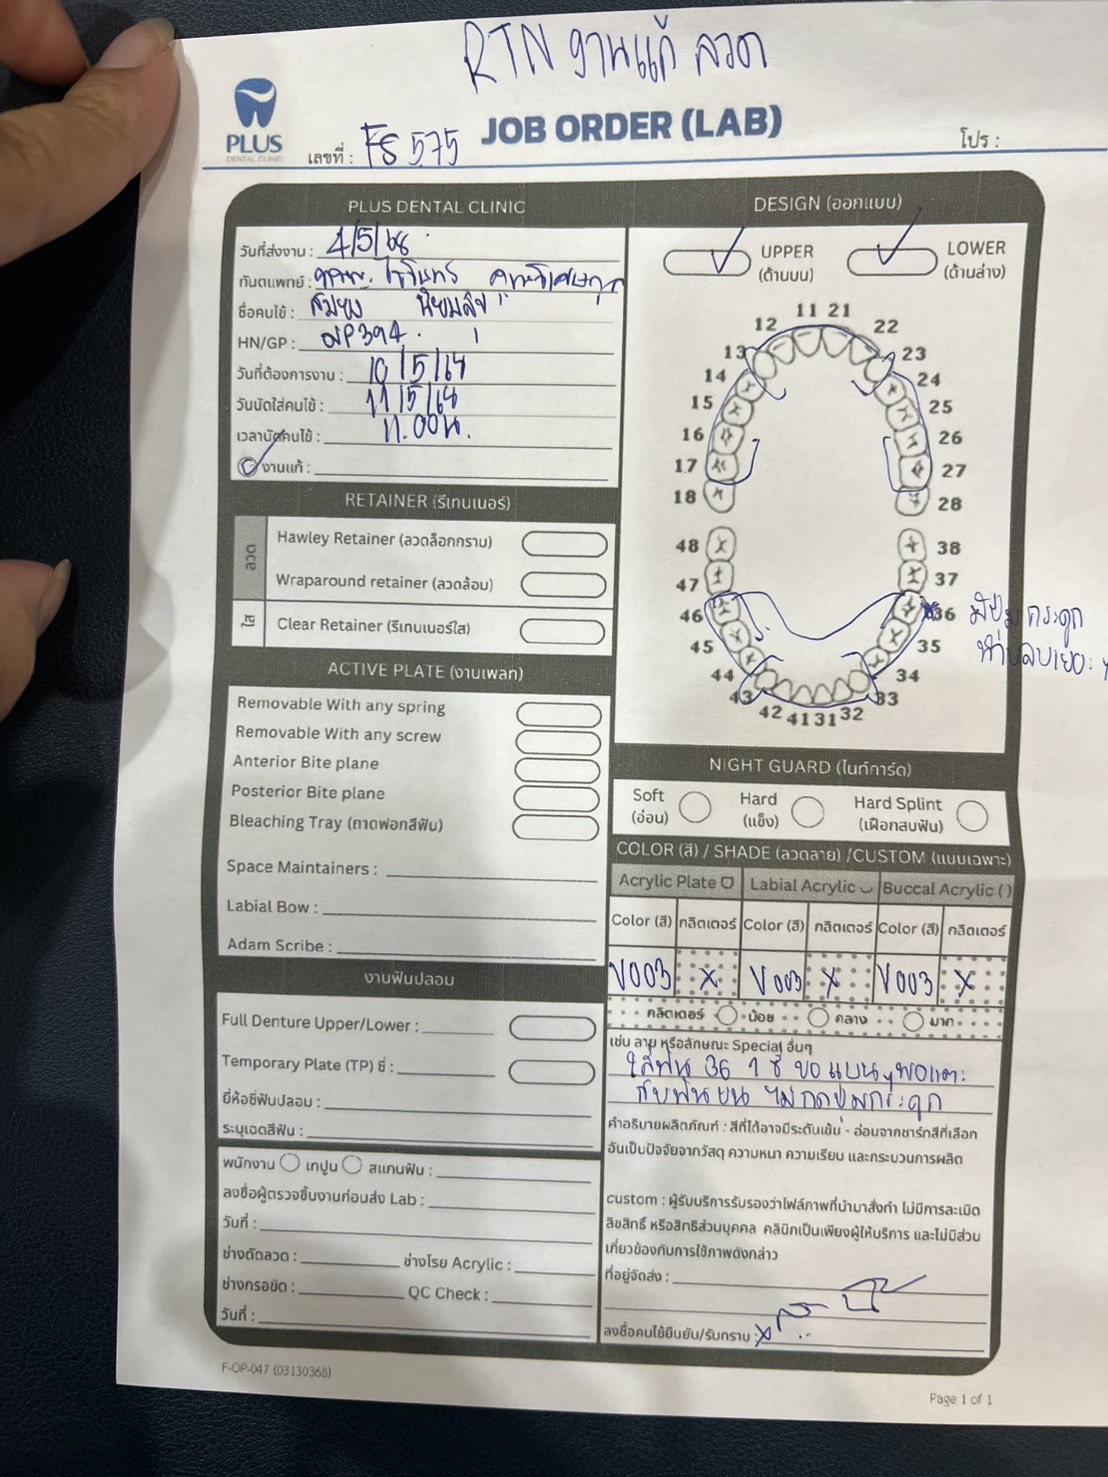 RTN งานแก้ ลวด
PLUS
DENTAL CLINIC
เลขที่ : FS 575
JOB ORDER (LAB)
โปร :
PLUS DENTAL CLINIC
วันที่ส่งงาน : 4/5/68
ทันตแพทย์ :
ชื่อคนไข้ :
HN/GP :
วันที่ต้องการงาน : 10/5/68
วันนัดใส่คนไข้ : 11/5/68
เวลานัดคนไข้ : 11.00น.
งานแก้ :
RETAINER (รีเทนเนอร์)
ลวด
Hawley Retainer (ลวดล็อกกราม)
Wraparound retainer (ลวดล้อม)
ใส
Clear Retainer (รีเทนเนอร์ใส)
ACTIVE PLATE (งานเพลท)
Removable With any spring
Removable With any screw
Anterior Bite plane
Posterior Bite plane
Bleaching Tray (ถาดฟอกสีฟัน)
Space Maintainers :
Labial Bow :
Adam Scribe :
งานฟันปลอม
Full Denture Upper/Lower :
Temporary Plate (TP) ซี่ :
ยี่ห้อซี่ฟันปลอม :
ระบุเฉดสีฟัน :
พนักงาน เทปูน สแกนฟัน :
ลงชื่อผู้ตรวจชิ้นงานก่อนส่ง Lab :
วันที่ :
ช่างดัดลวด : ช่างโรย Acrylic :
ช่างกรอขัด : QC Check :
วันที่ :
DESIGN (ออกแบบ)
UPPER
(ด้านบน)
LOWER
(ด้านล่าง)
11 21
12 22
13 23
14 24
15 25
16 26
17 27
18 28
48 38
47 37
46 36 มีปุ่มกระดูก
45 35
44 34
43 33
42 41 31 32
NIGHT GUARD (ไนท์การ์ด)
Soft
(อ่อน)
Hard
(แข็ง)
Hard Splint
(เฝือกสบฟัน)
COLOR (สี) / SHADE (ลวดลาย) /CUSTOM (แบบเฉพาะ)
Acrylic Plate Labial Acrylic Buccal Acrylic ( )
Color (สี) กลิตเตอร์ Color (สี) กลิตเตอร์ Color (สี) กลิตเตอร์
V003 X V003 X V003 X
กลิตเตอร์ น้อย กลาง มาก
เช่น ลาย หรือลักษณะ Special อื่นๆ
ใส่ฟัน 36 1 ซี่ ขอแบนๆ พอแตะ
กับฟันบน ไม่กดปุ่มกระดูก
คำอธิบายผลิตภัณฑ์ : สีที่ได้อาจมีระดับเข้ม - อ่อนจากชาร์ทสีที่เลือก
อันเป็นปัจจัยจากวัสดุ ความหนา ความเรียบ และกระบวนการผลิต
custom : ผู้รับบริการรับรองว่าไฟล์ภาพที่นำมาสั่งทำ ไม่มีการละเมิด
ลิขสิทธิ์ หรือสิทธิส่วนบุคคล คลินิกเป็นเพียงผู้ให้บริการ และไม่มีส่วน
เกี่ยวข้องกับการใช้ภาพดังกล่าว
ที่อยู่จัดส่ง :
ลงชื่อคนไข้ยืนยัน/รับทราบ : x
F-OP-047 (03130368)
Page 1 of 1